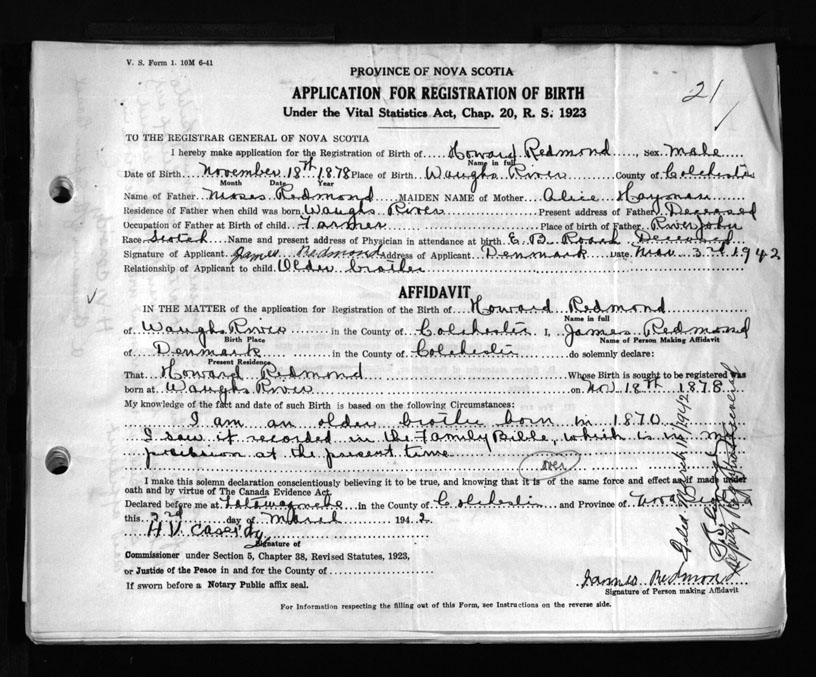 V. S. Form 1. 10M 6-41
PROVINCE OF NOVA SCOTIA
APPLICATION FOR REGISTRATION OF BIRTH
Under the Vital Statistics Act, Chap. 20, R. S. 1923
21
TO THE REGISTRAR GENERAL OF NOVA SCOTIA
I hereby make application for the Registration of Birth of Howard Redmond, Sex Male
Name in full
Date of Birth November 18th 1878 Place of Birth Waughs River County of Colchester
Month Date Year
Name of Father Moses Redmond MAIDEN NAME of Mother Alice Hayman
Residence of Father when child was born Waughs River Present address of Father Deceased
Occupation of Father at Birth of child Farmer Place of birth of Father River John
Race Scotch Name and present address of Physician in attendance at birth E. B. Roach Deceased
Signature of Applicant James Redmond Address of Applicant Denmark Date Mar 3rd 1942
Relationship of Applicant to child Older brother
AFFIDAVIT
IN THE MATTER of the application for Registration of the Birth of Howard Redmond
Name in full
of Waughs River in the County of Colchester I, James Redmond
Birth Place Name of Person Making Affidavit
of Denmark in the County of Colchester do solemnly declare:
Present Residence
That Howard Redmond Whose Birth is sought to be registered was
born at Waughs River on Nov 18th 1878
My knowledge of the fact and date of such Birth is based on the following Circumstances:
I am an older brother born in 1870
I saw it recorded in the Family Bible, which is in my
possession at the present time
over
I make this solemn declaration conscientiously believing it to be true, and knowing that it is of the same force and effect as if made under
oath and by virtue of The Canada Evidence Act.
Declared before me at Tatamagouche in the County of Colchester and Province of Nova Scotia
this 3rd day of March 1942
H V Cassidy
Signature of
Commissioner under Section 5, Chapter 38, Revised Statutes, 1923,
or Justice of the Peace in and for the County of
If sworn before a Notary Public affix seal.
James Redmond
Signature of Person making Affidavit
For Information respecting the filling out of this Form, see Instructions on the reverse side.
Filed March 18/1942
Deputy Registrar General